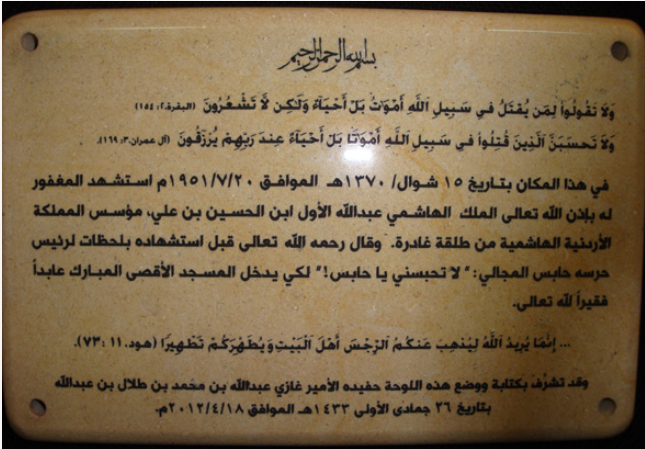 بسم الله الرحمن الرحيم
وَلَا تَقُولُواْ لِمَن يُقْتَلُ فِي سَبِيلِ اللَّهِ أَمْوَاتٌ بَلْ أَحْيَاءٌ وَلَٰكِن لَّا تَشْعُرُونَ (البقرة،٢: ١٥٤)
وَلَا تَحْسَبَنَّ الَّذِينَ قُتِلُواْ فِي سَبِيلِ اللَّهِ أَمْوَاتًا بَلْ أَحْيَاءٌ عِندَ رَبِّهِمْ يُرْزَقُونَ (آل عمران،٣: ١٦٩).
في هذا المكان بتاريخ ١٥ شوال/ ١٣٧٠هـ الموافق ١٩٥١/٧/٢٠م استشهد المغفور
له بإذن الله تعالى الملك الهاشمي عبدالله الأول ابن الحسين بن علي، مؤسس المملكة
الأردنية الهاشمية من طلقة غادرة. وقال رحمه الله تعالى قبل استشهاده بلحظات لرئيس
حرسه حابس المجالي: "لا تحبسني يا حابس!" لكي يدخل المسجد الأقصى المبارك عابداً
فقيراً لله تعالى.
... إِنَّمَا يُرِيدُ اللَّهُ لِيُذْهِبَ عَنكُمُ الرِّجْسَ أَهْلَ الْبَيْتِ وَيُطَهِّرَكُمْ تَطْهِيرًا (هود، ١١ :٧٣).
وقد تشرَّف بكتابة ووضع هذه اللوحة حفيده الأمير غازي عبدالله بن محمد بن طلال بن عبدالله
بتاريخ ٢٦ جمادى الأولى ١٤٣٣هـ الموافق ٢٠١٢/٤/١٨م.